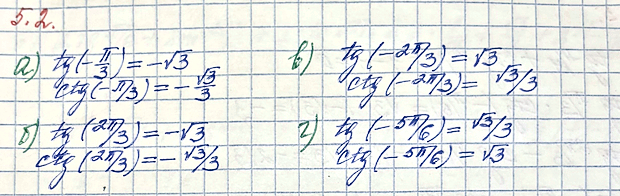 5.2.
а) tg(-π/3) = -√3
ctg(-π/3) = -√3/3
б) tg(2π/3) = -√3
ctg(2π/3) = -√3/3
в) tg(-2π/3) = √3
ctg(-2π/3) = √3/3
г) tg(-5π/6) = √3/3
ctg(-5π/6) = √3